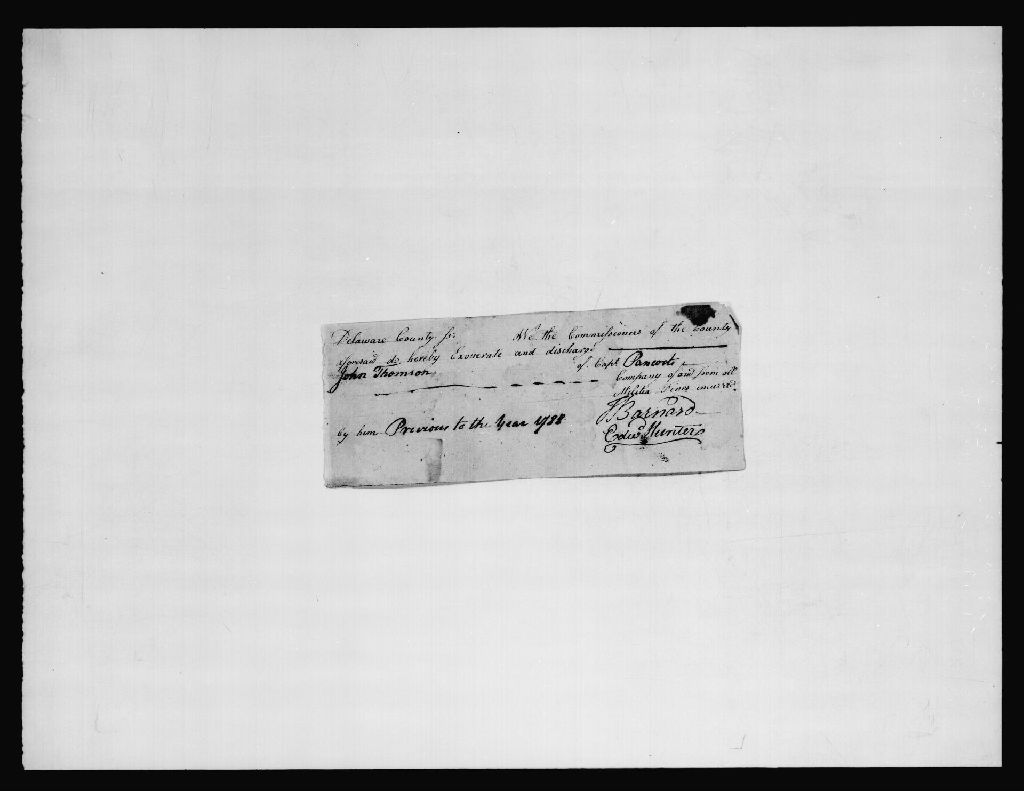 Delaware County Ss. We the Commissioners of the County
aforesaid do hereby Exonerate and discharge
John Thomson of Capt. Pancosts
Company of and from all
Militia Fines incurr'd
by him Previous to the Year 1788
J Barnard
Edwd Hunter